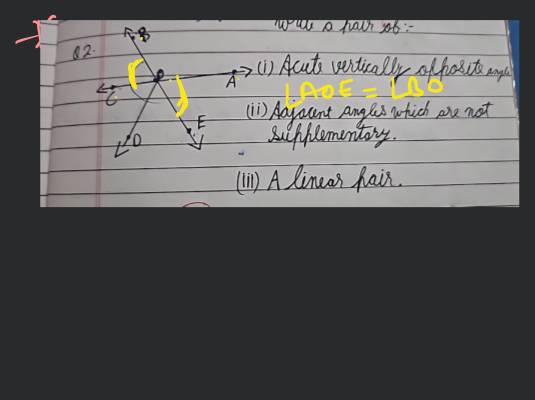 Write a pair of:-
Q2.
B
O
(i) Acute vertically opposite angles
A
C
∠AOE = ∠BO
(ii) Adjacent angles which are not
E
supplementary.
D
(iii) A linear pair.